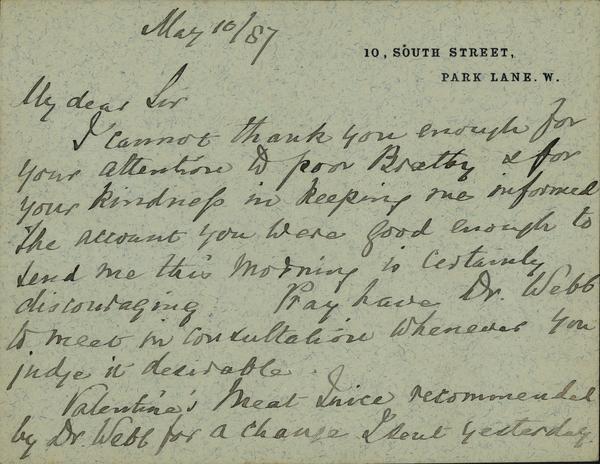 May 10/87
10, SOUTH STREET,
PARK LANE. W.
My dear Sir
I cannot thank you enough for
your attention to poor Bratby & for
your kindness in keeping me informed
The account you were good enough to
send me this Morning is certainly
discouraging Pray have Dr. Webb
to meet in consultation whenever you
judge it desirable.
Valentine's Meat Juice recommended
by Dr. Webb for a change I sent yesterday.